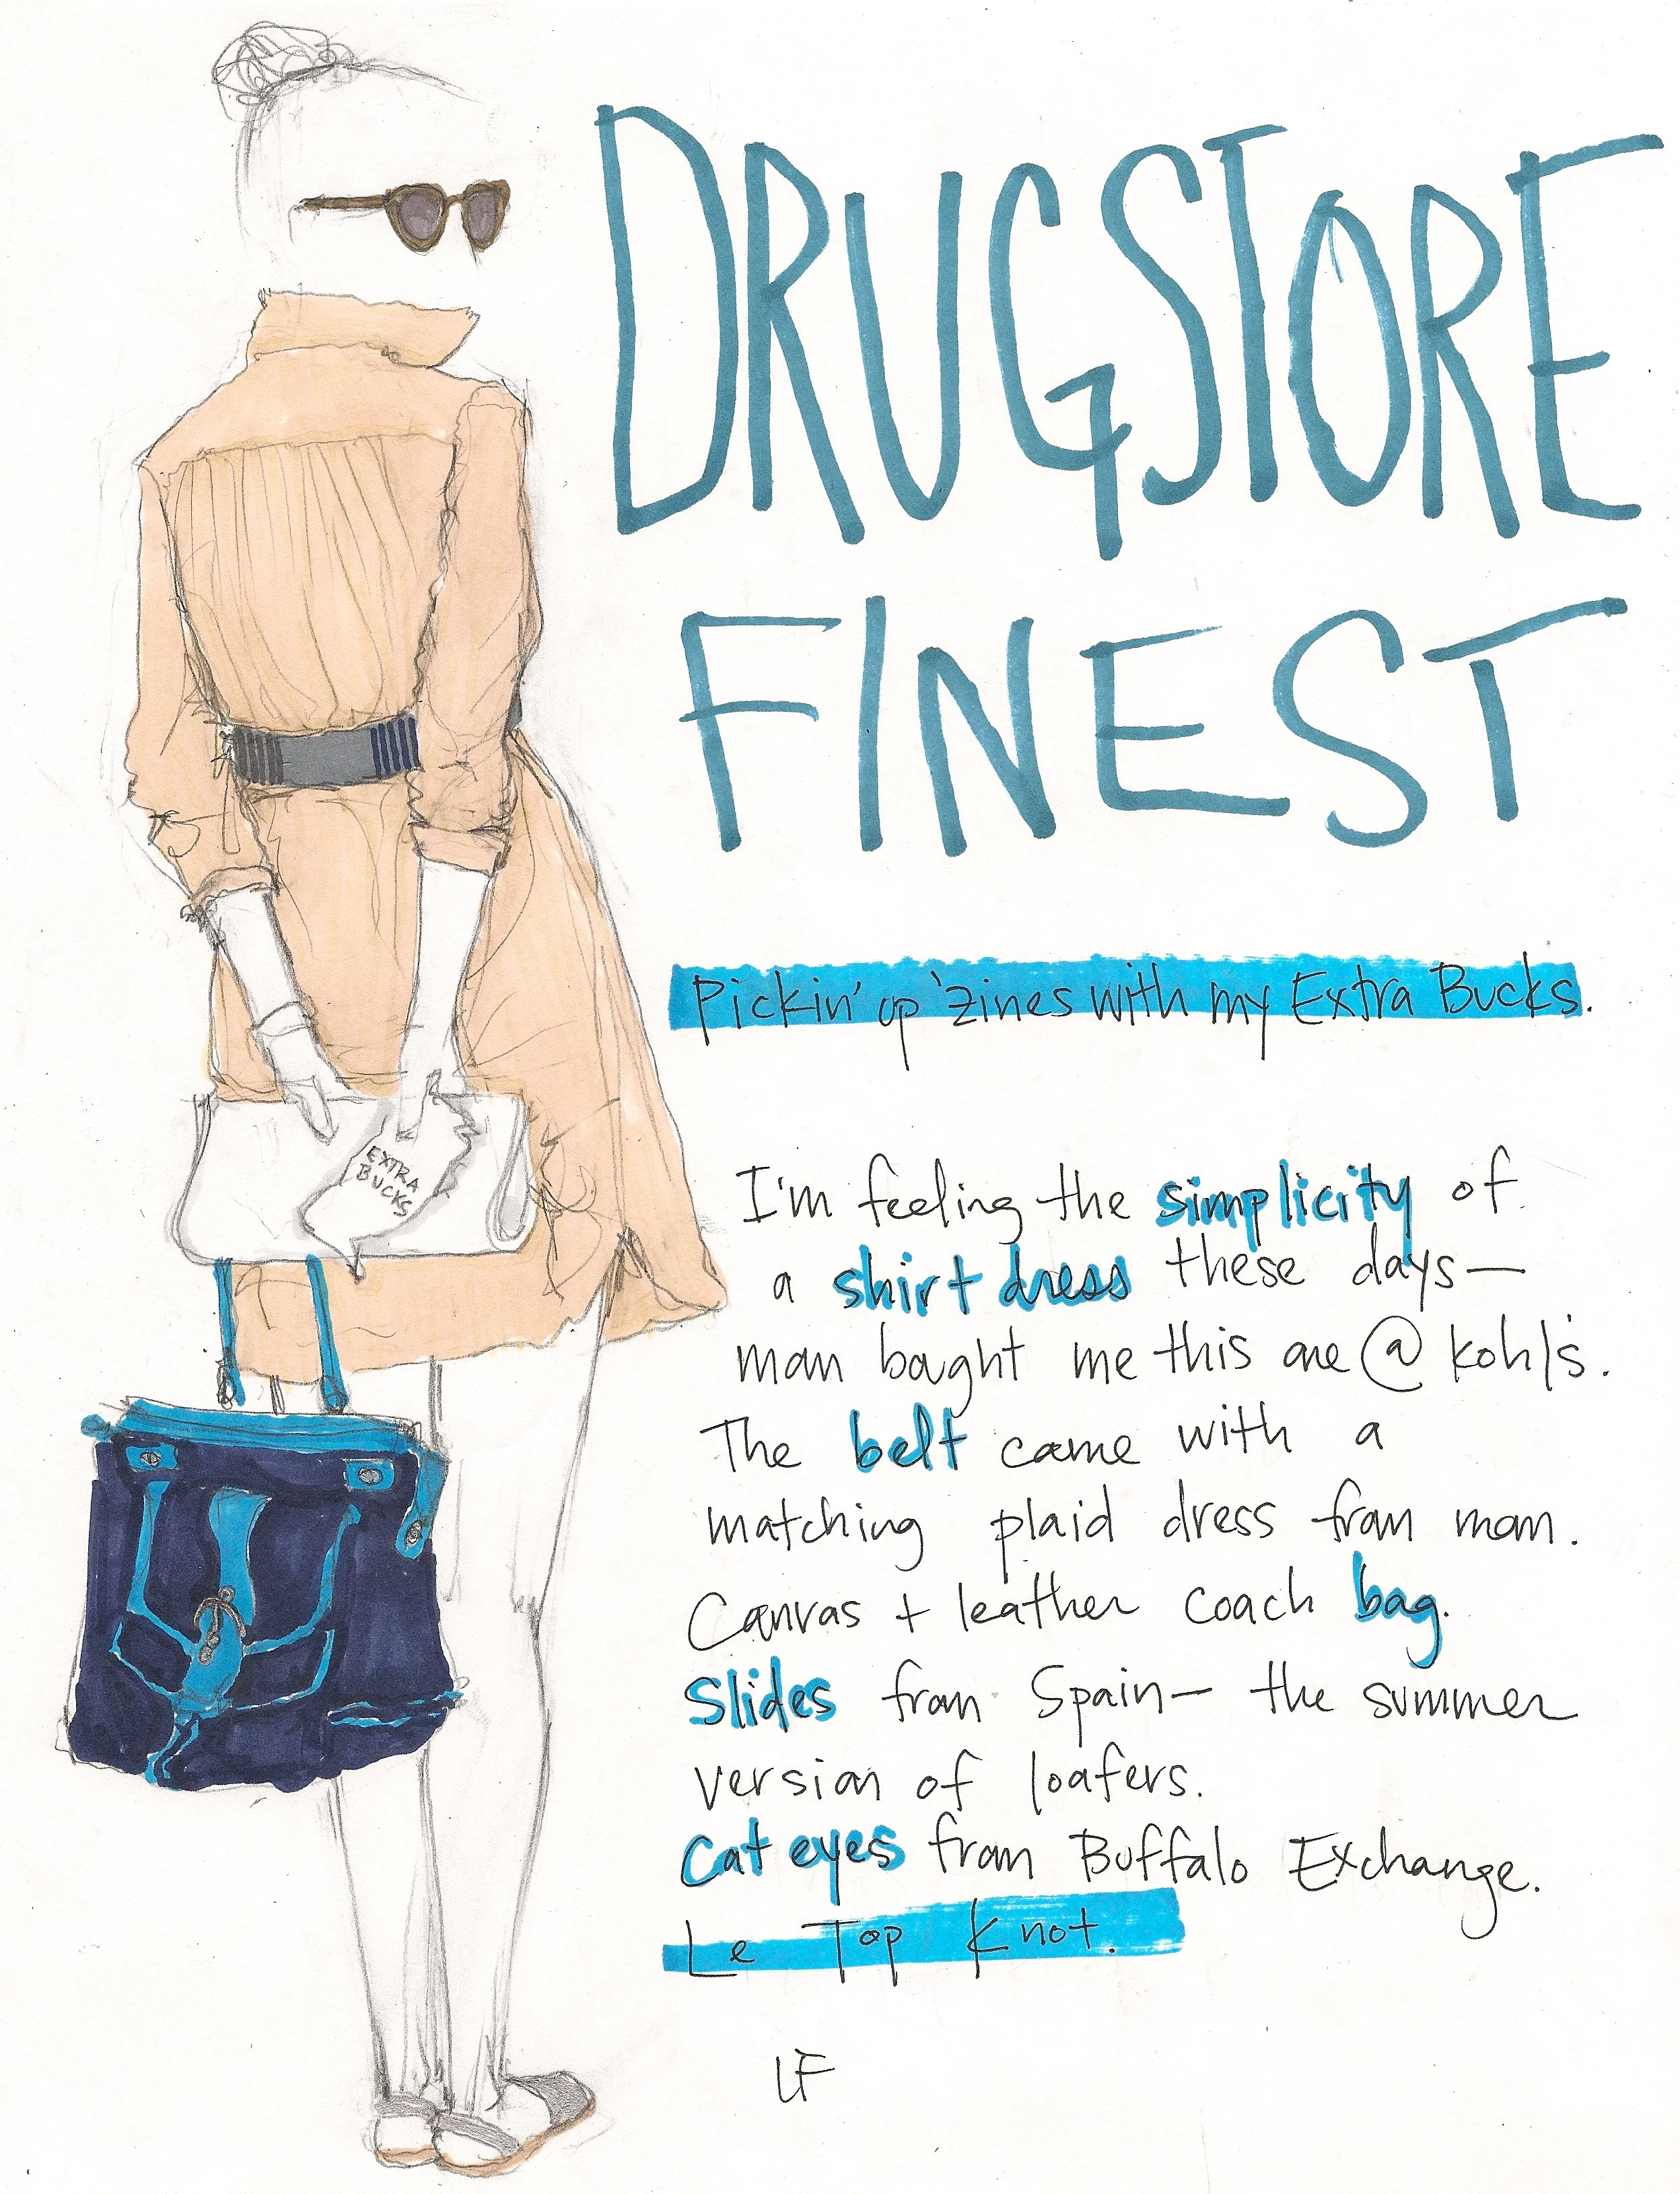 DRUGSTORE
FINEST
Pickin' up 'zines with my Extra Bucks.
EXTRA
BUCKS
I'm feeling the simplicity of
a shirt dress these days—
mom bought me this one @ Kohl's.
The belt came with a
matching plaid dress from mom.
Canvas + leather coach bag.
Slides from Spain— the summer
version of loafers.
Cat eyes from Buffalo Exchange.
Le Top Knot.
LF